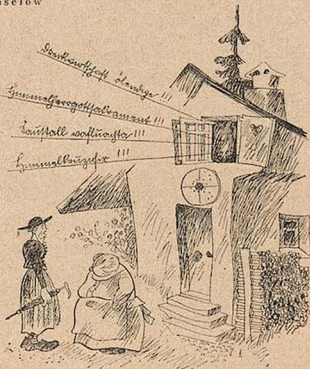 aselow
Dreckwirtschaft ölendige !!!
Himmelherrgottsakrament !!!
Saustall vofluachta !!!
Himmelkruzefix !!!